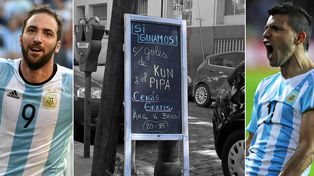 SI
¡GANAMOS!
c/goles de
KUN
y el
PIPA
Cenás
GRATIS
Arg. V. Brasil
(20-25)
9